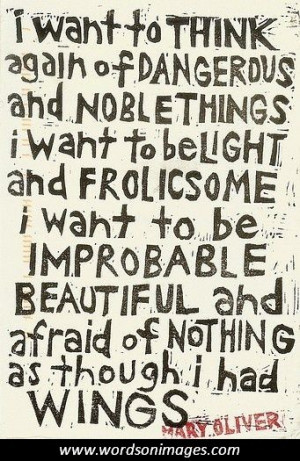 i want to THINK
again of DANGEROUS
and NOBLE THINGS
i want to be LIGHT
and FROLICSOME
i want to be
IMPROBABLE
BEAUTIFUL and
afraid of NOTHING
as though i had
WINGS
MARY OLIVER
www.wordsonimages.com